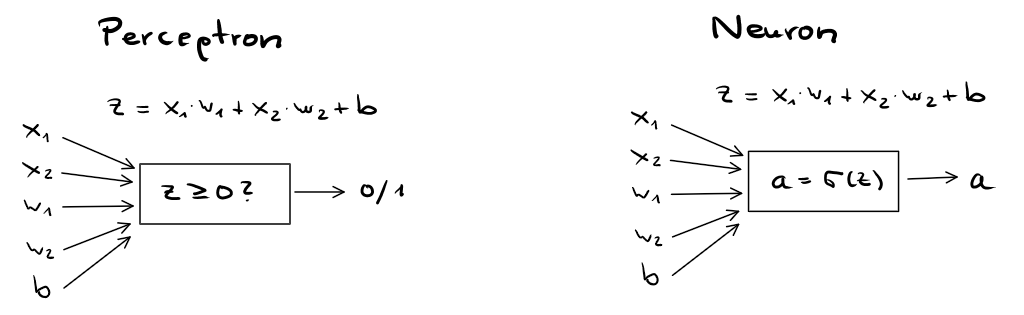 Perceptron
z = x₁·w₁ + x₂·w₂ + b
x₁
x₂
w₁
w₂
b
z ≥ 0 ?
0/1
Neuron
z = x₁·w₁ + x₂·w₂ + b
x₁
x₂
w₁
w₂
b
a = σ(z)
a